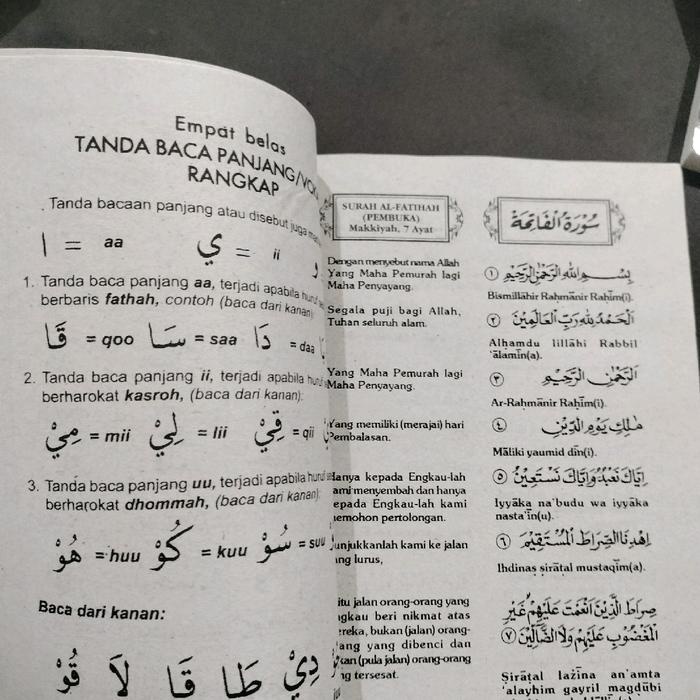 Empat belas
TANDA BACA PANJANG/VOK
RANGKAP
Tanda bacaan panjang atau disebut juga
ا = aa ي = ii و
1. Tanda baca panjang aa, terjadi apabila
berbaris fathah, contoh (baca dari kanan)
قَا = qoo سَا = saa دَا = daa
2. Tanda baca panjang ii, terjadi apabila
berharokat kasroh, (baca dari kanan):
مِيْ = mii لِيْ = lii قِيْ = qii
3. Tanda baca panjang uu, terjadi apabila
berharokat dhommah, (baca dari kanan):
هُوْ = huu كُوْ = kuu سُوْ = suu
Baca dari kanan:
دِيْ طَا قَا لَا قُوْ
SURAH AL-FATIHAH
(PEMBUKA)
Makkiyah, 7 Ayat
Dengan menyebut nama Allah
Yang Maha Pemurah lagi
Maha Penyayang.
Segala puji bagi Allah,
Tuhan seluruh alam.
Yang Maha Pemurah lagi
Maha Penyayang.
Yang memiliki (merajai) hari
Pembalasan.
Hanya kepada Engkau-lah
kami menyembah dan hanya
kepada Engkau-lah kami
memohon pertolongan.
Tunjukkanlah kami ke jalan
yang lurus,
yaitu jalan orang-orang yang
Engkau beri nikmat atas
mereka, bukan (jalan) orang-
orang yang dibenci dan
bukan (pula jalan) orang-orang
yang tersesat.
سُوْرَةُ الْفَاتِحَةِ
بِسْمِ اللهِ الرَّحْمٰنِ الرَّحِيْمِ ١
Bismillāhir Raḥmānir Raḥīm(i).
اَلْحَمْدُ لِلّٰهِ رَبِّ الْعَالَمِيْنَ ٢
Alḥamdu lillāhi Rabbil
'ālamīn(a).
اَلرَّحْمٰنِ الرَّحِيْمِ ٣
Ar-Raḥmānir Raḥīm(i).
مٰلِكِ يَوْمِ الدِّيْنِ ٤
Māliki yaumid dīn(i).
اِيَّاكَ نَعْبُدُ وَاِيَّاكَ نَسْتَعِيْنُ ٥
Iyyāka na'budu wa iyyāka
nasta'īn(u).
اِهْدِنَا الصِّرَاطَ الْمُسْتَقِيْمَ ٦
Ihdinaṣ ṣirāṭal mustaqīm(a).
صِرَاطَ الَّذِيْنَ اَنْعَمْتَ عَلَيْهِمْ غَيْرِ
الْمَغْضُوْبِ عَلَيْهِمْ وَلَا الضَّالِّيْنَ ٧
Ṣirāṭal lażīna an'amta
'alayhim gayril magḍūbi